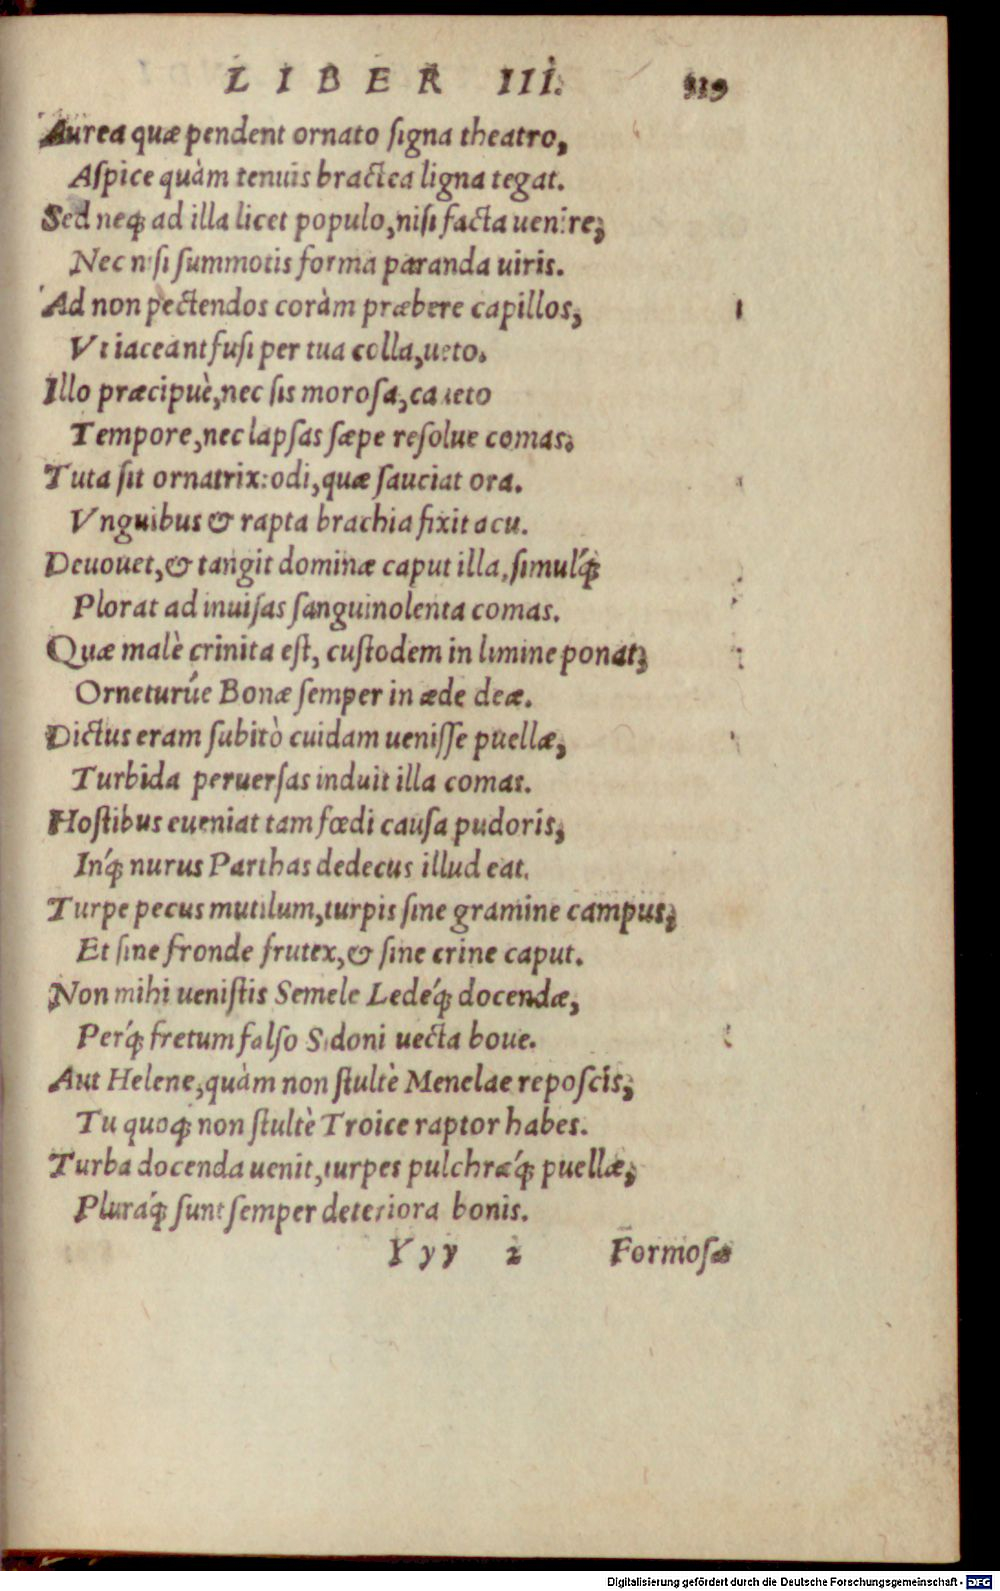 LIBER III. 339
Aurea quæ pendent ornato ſigna theatro,
Aſpice quàm tenuis bractea ligna tegat.
Sed neq; ad illa licet populo, niſi facta uenire;
Nec niſi ſummotis forma paranda uiris.
Ad non pectendos coràm præbere capillos,
Vt iaceant fuſi per tua colla, ueto.
Illo præcipuè, nec ſis moroſa, caueto
Tempore, nec lapſas ſæpe reſolue comas.
Tuta ſit ornatrix: odi, quæ ſauciat ora.
Vnguibus & rapta brachia fixit acu.
Deuouet, & tangit dominæ caput illa, ſimulq́;
Plorat ad inuiſas ſanguinolenta comas.
Quæ malè crinita eſt, cuſtodem in limine ponat;
Orneturúe Bonæ ſemper in æde deæ.
Dictus eram ſubitò cuidam ueniſſe puellæ,
Turbida peruerſas induit illa comas.
Hoſtibus eueniat tam fœdi cauſa pudoris,
Inq́; nurus Parthas dedecus illud eat.
Turpe pecus mutilum, turpis ſine gramine campus;
Et ſine fronde frutex, & ſine crine caput.
Non mihi ueniſtis Semele Ledeq́; docendæ,
Perq́; fretum falſo Sidoni uecta boue.
Aut Helene, quàm non ſtultè Menelae repoſcis;
Tu quoq; non ſtultè Troice raptor habes.
Turba docenda uenit, turpes pulchræq́; puellæ,
Pluraq́; ſunt ſemper deteriora bonis.
Yyy 2 Formoſæ
Digitalisierung gefördert durch die Deutsche Forschungsgemeinschaft - DFG